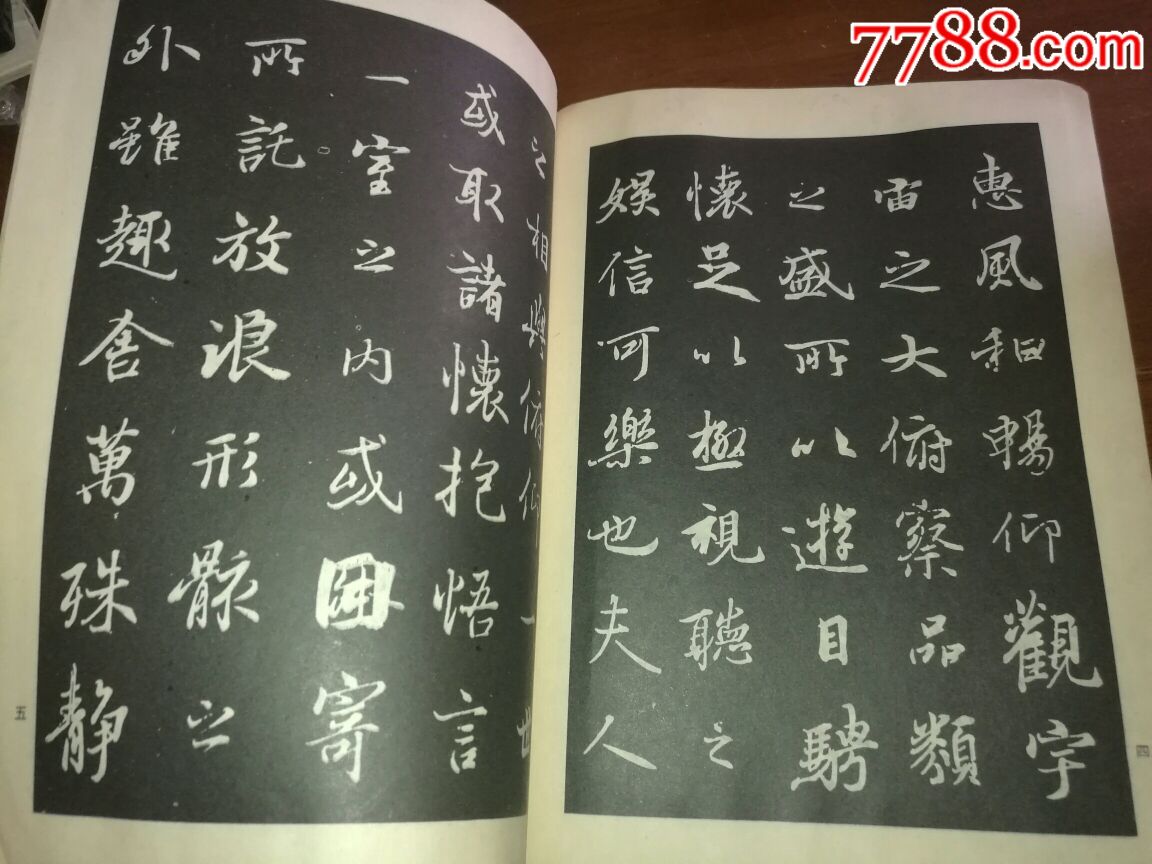 7788.com
惠風和暢仰觀宇
宙之大俯察品類
之盛所以遊目騁
懷足以極視聽之
娛信可樂也夫人
四
之相與俯仰一世
或取諸懷抱悟言
一室之內或因寄
所託放浪形骸之
外雖趣舍萬殊静
五